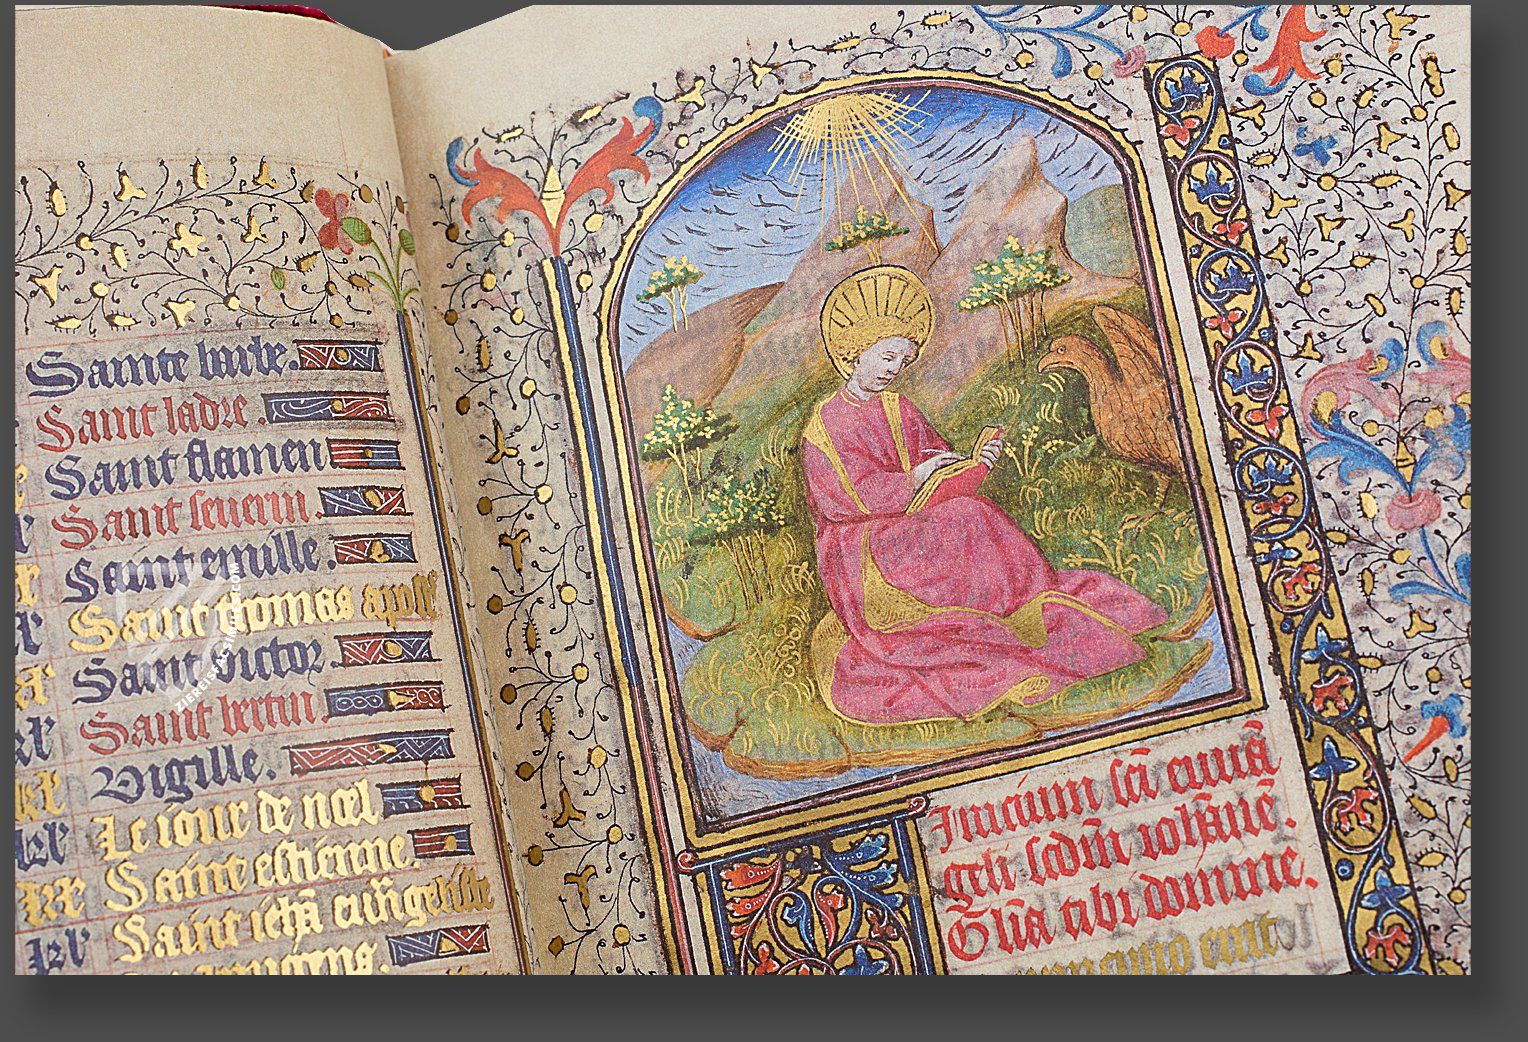 Sainte luce.
Saint ladre.
Saint flamien
Saint seuerin.
Sainte mille.
Saint thomas apostre
Saint victor.
Saint bertin.
Vigille.
Le iour de noel
Saint estienne.
Saint iehã euãgeliste
ZIEREISFACSIMILES.COM
Inicium sc̃i euuã
geli scdm̃ iohãnẽ.
Gl̃ia tibi domine.